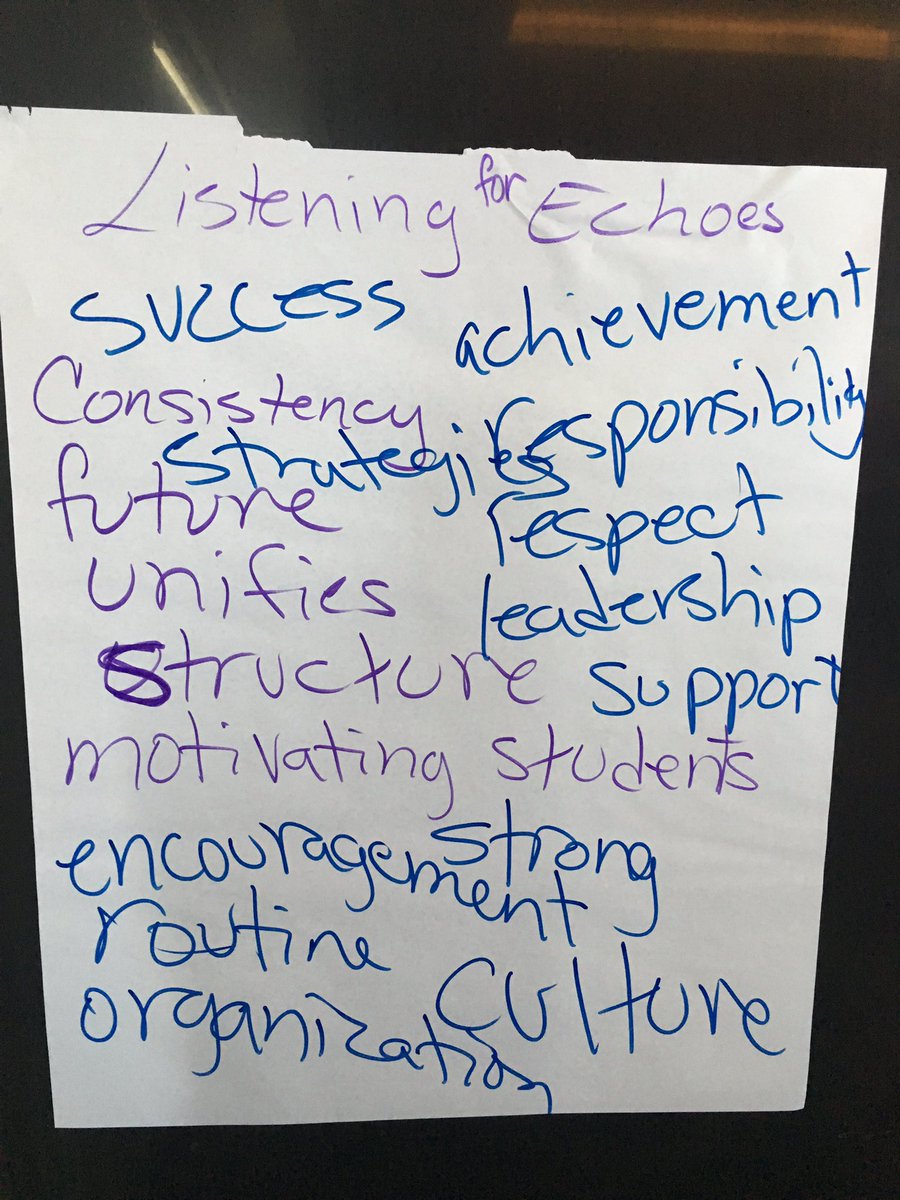 Listening for Echoes
success
achievement
Consistency
strategies
responsibility
future
respect
unifies
leadership
structure
support
motivating students
encouragement
strong
routine
culture
organization